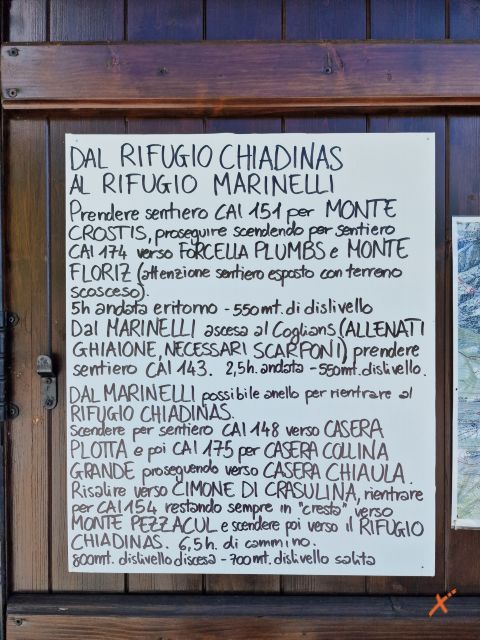 DAL RIFUGIO CHIADINAS
AL RIFUGIO MARINELLI
Prendere sentiero CAI 151 per MONTE
CROSTIS, proseguire scendendo per sentiero
CAI 174 verso FORCELLA PLUMBS e MONTE
FLORIZ (attenzione sentiero esposto con terreno
scosceso).
5h andata eritorno - 550 mt. di dislivello
Dal MARINELLI ascesa al Coglians (ALLENATI
GHIAIONE, NECESSARI SCARPONI) prendere
sentiero CAI 143. 2,5h. andata - 550mt. dislivello.
DAL MARINELLI possibile anello per rientrare al
RIFUGIO CHIADINAS.
Scendere per sentiero CAI 148 verso CASERA
PLOTTA e poi CAI 175 per CASERA COLLINA
GRANDE proseguendo verso CASERA CHIAULA.
Risalire verso CIMONE DI CRASULINA, rientrare
per CAI 154 restando sempre in "cresta" verso
MONTE PEZZACUL e scendere poi verso il RIFUGIO
CHIADINAS. 6,5h. di cammino.
800mt. dislivello discesa - 700 mt. dislivello salita